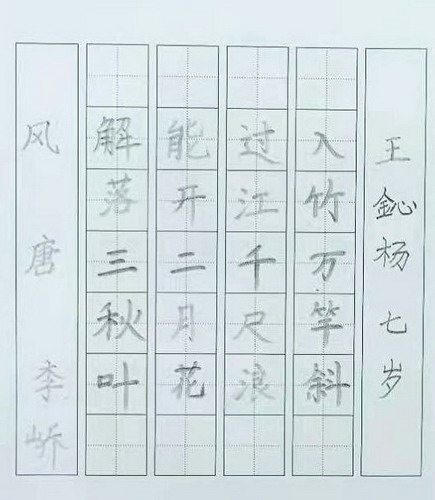 风 唐 李峤
解落三秋叶
能开二月花
过江千尺浪
入竹万竿斜
王鈊杨 七岁